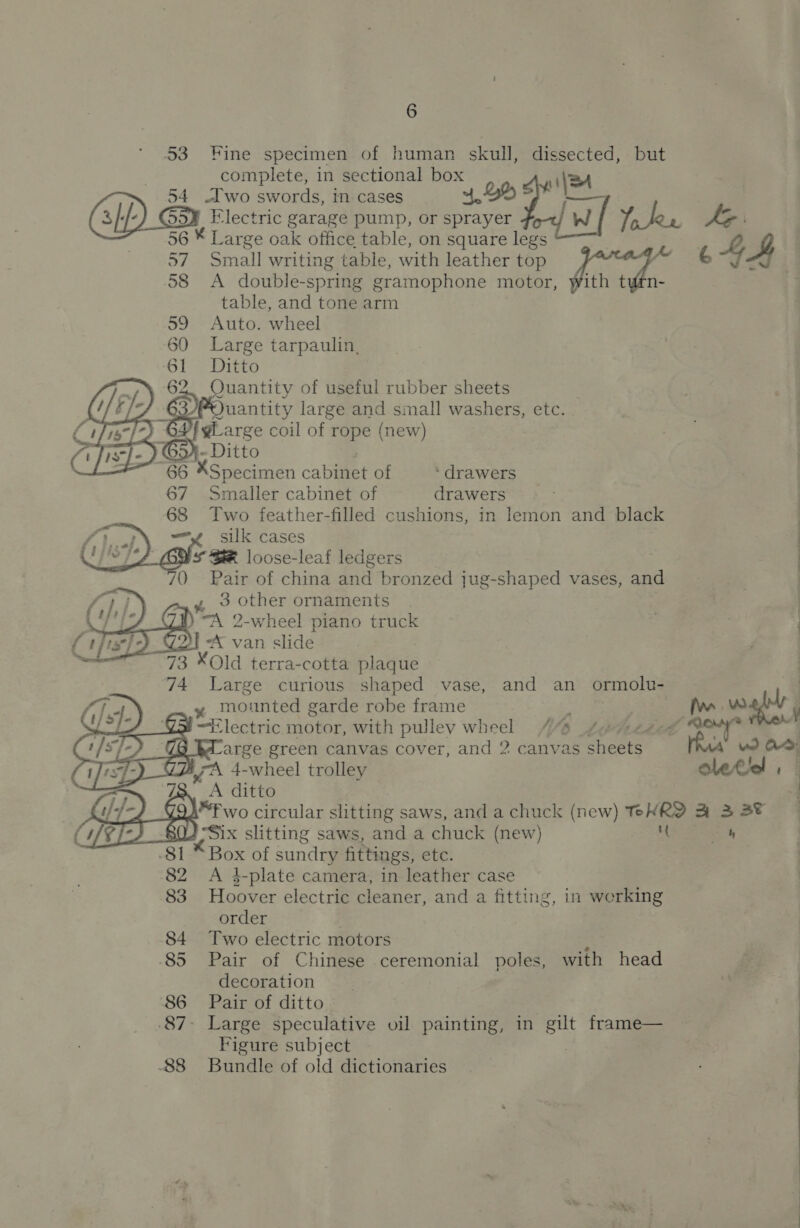 6
53 Fine specimen of human skull, dissected, but
complete, in sectional box
54 Two swords, in cases
(3/-/-) 55 Electric garage pump, or sprayer for W
56 * Large oak office table, on square legs
57 Small writing table, with leather top garage
58 A double-spring gramophone motor, with turn-
table, and tone arm
59 Auto. wheel
60 Large tarpaulin,
61 Ditto
62 Quantity of useful rubber sheets
63 Quantity large and small washers, etc.
(1/15/-) 64 Large coil of rope (new)
(1/15/-) 65 Ditto
66 Specimen cabinet of drawers
67 Smaller cabinet of drawers
68 Two feather-filled cushions, in lemon and black
silk cases
loose-leaf ledgers
70 Pair of china and bronzed jug-shaped vases, and
3 other ornaments
71 A 2-wheel piano truck
72 A van slide
73 Old terra-cotta plaque
74 Large curious shaped vase, and an ormolu-
mounted garde robe frame
Electric motor, with pulley wheel
Large green canvas cover, and 2 canvas sheets this was
77 A 4-wheel trolley
78 A ditto
79 Two circular slitting saws, and a chuck (new)
80 Six slitting saws, and a chuck (new)
81 * Box of sundry fittings, etc.
82 A ¼-plate camera, in leather case
83 Hoover electric cleaner, and a fitting, in working
order
84 Two electric motors
85 Pair of Chinese ceremonial poles, with head
decoration
86 Pair of ditto
87 Large speculative oil painting, in gilt frame—
Figure subject
88 Bundle of old dictionaries